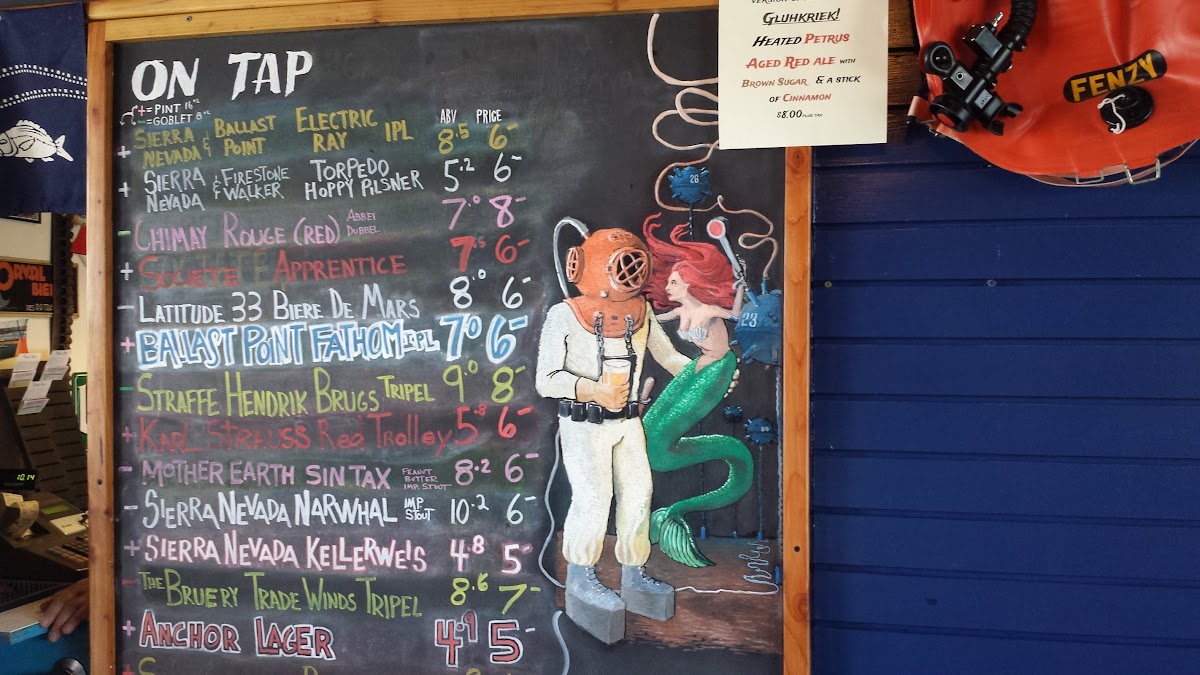 VERSION
GLUHKRIEK!
HEATED PETRUS
AGED RED ALE WITH
BROWN SUGAR & A STICK
OF CINNAMON
$8.00 PLUS TAX
FENZY
ON TAP
+ = PINT 16oz
- = GOBLET 8oz
ABV PRICE
+ SIERRA NEVADA & BALLAST POINT ELECTRIC RAY IPL 8.5 6-
+ SIERRA NEVADA & FIRESTONE WALKER TORPEDO HOPPY PILSNER 5.2 6-
- CHIMAY ROUGE (RED) ABBEI DUBBEL 7.0 8-
+ SOCIETE APPRENTICE 7.5 6-
- LATITUDE 33 BIERE DE MARS 8.0 6-
+ BALLAST POINT FATHOM IPL 7.0 6-
- STRAFFE HENDRIK BRUGS TRIPEL 9.0 8-
+ KARL STRAUSS Red Trolley 5.8 6-
- MOTHER EARTH SIN TAX PEANUT BUTTER IMP. STOUT 8.2 6-
- SIERRA NEVADA NARWHAL IMP STOUT 10.2 6-
+ SIERRA NEVADA KELLERWEIS 4.8 5-
- THE BRUERY TRADE WINDS TRIPEL 8.6 7-
+ ANCHOR LAGER 4.9 5-
26
23
ORVAL
10:14